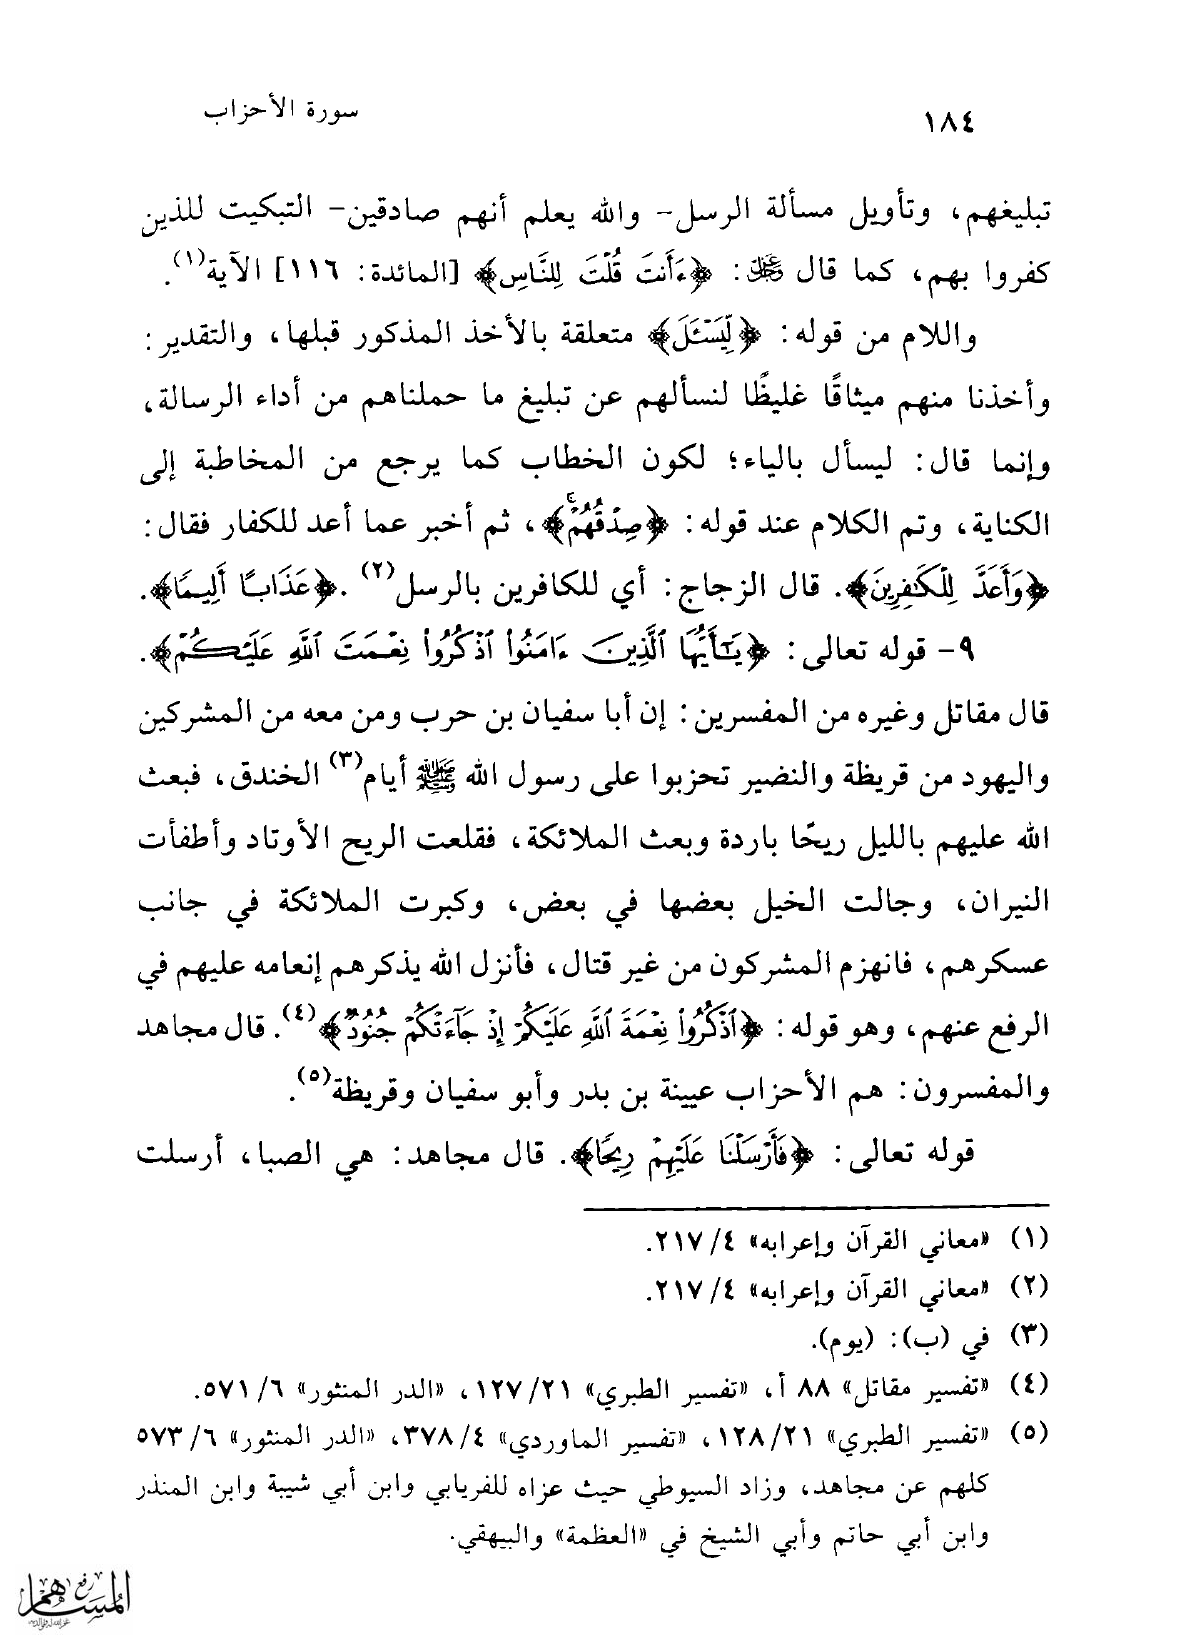 ١٨٤ سورة الأحزاب
تبليغهم، وتأويل مسألة الرسل- والله يعلم أنهم صادقين- التبكيت للذين
كفروا بهم، كما قال عز وجل: ﴿ءَأَنتَ قُلْتَ لِلنَّاسِ﴾ [المائدة: ١١٦] الآية(١).
واللام من قوله: ﴿لِّيَسْـَٔلَ﴾ متعلقة بالأخذ المذكور قبلها، والتقدير:
وأخذنا منهم ميثاقًا غليظًا لنسألهم عن تبليغ ما حملناهم من أداء الرسالة،
وإنما قال: ليسأل بالياء؛ لكون الخطاب كما يرجع من المخاطبة إلى
الكناية، وتم الكلام عند قوله: ﴿صِدْقِهِمْ﴾، ثم أخبر عما أعد للكفار فقال:
﴿وَأَعَدَّ لِلْكَـٰفِرِينَ﴾. قال الزجاج: أي للكافرين بالرسل(٢). ﴿عَذَابًا أَلِيمًا﴾.
٩- قوله تعالى: ﴿يَـٰٓأَيُّهَا ٱلَّذِينَ ءَامَنُوا۟ ٱذْكُرُوا۟ نِعْمَتَ ٱللَّهِ عَلَيْكُمْ﴾.
قال مقاتل وغيره من المفسرين: إن أبا سفيان بن حرب ومن معه من المشركين
واليهود من قريظة والنضير تحزبوا على رسول الله ﷺ أيام(٣) الخندق، فبعث
الله عليهم بالليل ريحًا باردة وبعث الملائكة، فقلعت الريح الأوتاد وأطفأت
النيران، وجالت الخيل بعضها في بعض، وكبرت الملائكة في جانب
عسكرهم، فانهزم المشركون من غير قتال، فأنزل الله يذكرهم إنعامه عليهم في
الرفع عنهم، وهو قوله: ﴿ٱذْكُرُوا۟ نِعْمَةَ ٱللَّهِ عَلَيْكُمْ إِذْ جَآءَتْكُمْ جُنُودٌ﴾(٤). قال مجاهد
والمفسرون: هم الأحزاب عيينة بن بدر وأبو سفيان وقريظة(٥).
قوله تعالى: ﴿فَأَرْسَلْنَا عَلَيْهِمْ رِيحًا﴾. قال مجاهد: هي الصبا، أرسلت
(١) «معاني القرآن وإعرابه» ٤/ ٢١٧.
(٢) «معاني القرآن وإعرابه» ٤/ ٢١٧.
(٣) في (ب): (يوم).
(٤) «تفسير مقاتل» ٨٨ أ، «تفسير الطبري» ٢١/ ١٢٧، «الدر المنثور» ٦/ ٥٧١.
(٥) «تفسير الطبري» ٢١/ ١٢٨، «تفسير الماوردي» ٤/ ٣٧٨، «الدر المنثور» ٦/ ٥٧٣
كلهم عن مجاهد، وزاد السيوطي حيث عزاه للفريابي وابن أبي شيبة وابن المنذر
وابن أبي حاتم وأبي الشيخ في «العظمة» والبيهقي.